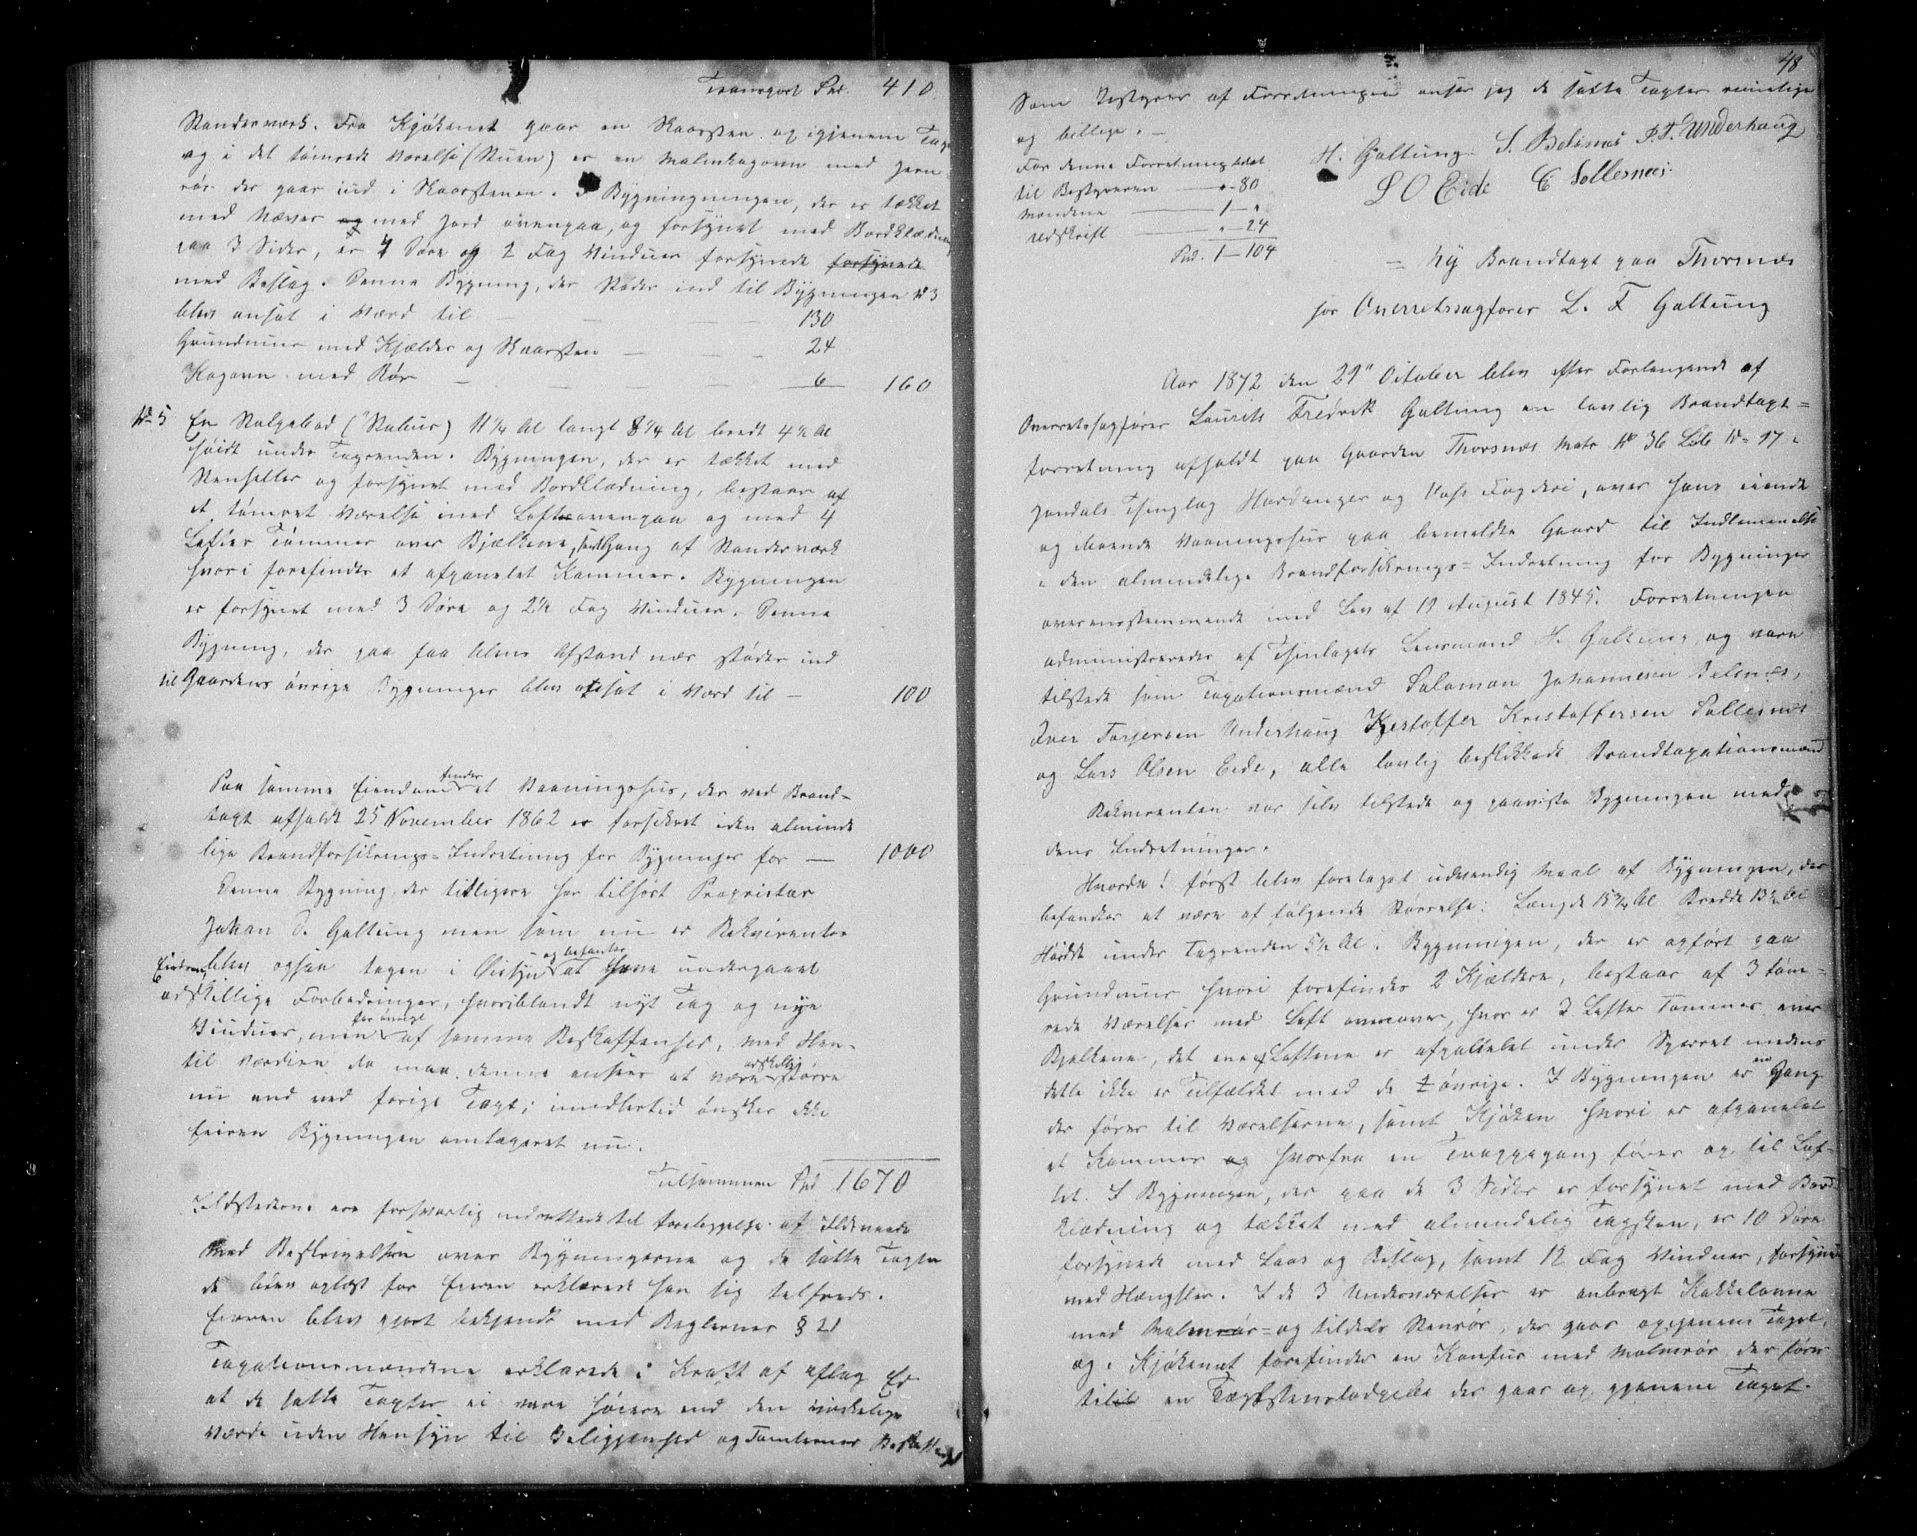 Transport Spd. 410.
Standerværk. Fra Kjøkenet gaar en Skaarsten op igjenem Tag
og i det tømrede Værelse (Stuen) er en Malmkagovn med Jern
rør der gaar ind i Skaarstenen. I Bygningningen, der er tækket
med Næver og med Jord ovenpaa, og forsynet med Bordklædning
paa 3 Sider, er 4 Døre og 2 Fag Vinduer forsynede forsynede
med Beslag. Denne Bygning, der støder ind til Bygningen No 3
blev ansat i Værd til — — — 130
Grundmur med Kjælder og Skaarsten — — — 24
Kagovn med Rør — — — 6 160
No 5 En Stolpebod (Stabur) 11 1/4 Al langt 8 1/4 Al bredt 4 1/2 Al
høidt under Tagrenden. Bygningen, der er tækket med
Stenheller og forsynet med Bordklædning, bestaar af
et tømret Værelse med Loft ovenpaa og med 4
Lefter Tømmer over Bjælkene, samt Gang af Standerværk
hvori forefindes et afpanelet Kammer. Bygningen
er forsynet med 3 Døre og 2 1/2 Fag Vinduer. Denne
Bygning, der paa faa Alens Afstand nær støder ind
til Gaardens øvrige Bygninger blev ansat i Værd til — 100
Paa samme Eiendom findes et Vaaningshus, der ved Brand-
taxt afholdt 25 November 1862 er forsikret i den alminde
lige Brandforsikrings-Indretning for Bygninger for — 1000
Denne Bygning, der tidligere har tilhørt Proprietær
Johan S. Galtung men som nu er Rekvirentens
Eiendom, blev ogsaa tagen i Øiesyn og befantes at have undergaaet
adskillige Forbedringer, hvoriblandt nyt Tag og nye
Vinduer, men forøvrigt af samme Beskaffenhed, med Hen-
til Værdien da maa denne ansees at være adskillig større
nu end ved forige Taxt; imidlertid ønsker ikke
Eieren Bygningen omtaxeret nu.
Tilsammen Spd 1670
Ildstederne ere forsvarlig indrettede til forebyggelse af Ildsvaade
Med Beskrivelsen over Bygningerne og de satte Taxter
de blev oplæst for Eieren erklærede han sig tilfreds.
Eieren blev gjort bekjendt med Reglernes § 21
Taxationsmændene erklærede i Kraft af aflag Ed
at de satte Taxter ei vare høiere end den virkelige
Værdi uden Hensyn til Beliggenhed og Tomternes Beskaffenhed
48
Som Bestyrer af Forretningen anser jeg de satte Taxter rimelige
og billige. —
For denne Forretning betalt
til Bestyreren — " - 80
Mændene — 1 — "
Udskrift — " - 24
Spd. 1 — 104
H. Galtung. S. Belsnes I. T. Underhaug
L O Eide C Sollesnæs.
= Ny Brandtaxt paa Thorsnæs
for Overretssagfører L. F Galtung
Aar 1872 den 29" October blev efter Forlangende af
Overretssagfører Laurits Fredrik Galtung en lovlig Brandtaxt=
forretning afholdt paa Gaarden Thorsnæs Matr No 36 Løb No 97 i
Jondals Thinglag Hardanger og Voss Fogderi, over hans eiende
og iboende Vaaningshus paa bemeldte Gaard til Indlemmelse
i den almindelige Brandforsikrings-Indretning for Bygninger
overensstemmende med Lov af 19 August 1845. Forretningen
administreredes af Thinlagets Lensmand H. Galtung, og vare
tilstede som Taxationsmænd Salamon Johannesen Belsnæs,
Iver Torjersen Underhaug Kristoffer Kristoffersen Sollesnæs
og Lars Olsen Eide, alle lovlig beskikkede Brandtaxationsmænd
Rekvirenten var selv tilstede og paaviste Bygningen med
dens Indretninger.
Hvorda! først blev foretaget udvendig Maal af Bygningen, der
befandtes at være af følgende Størrelse: Længde 15 3/4 Al Bredde 13 1/2 Al
Høide under Tagrenden 5 1/2 Al. Bygningen, der er opført paa
Grundmur hvori forefindes 2 Kjældere, bestaar af 3 tøm=
rede Værelser med Loft ovenover, hvor er 3 Lefter Tømmer over
Bjelkene, det ene af Loftene er afpanelet under Sperret medens
dette ikke er Tilfældet med de 2 øvrige. I Bygningen er en Gang
der fører til Værelserne, samt Kjøken hvori er afpanelet
et Kammer og hvorfra en Trappegang fører op til Lof=
tet. I Bygningen, der paa de 3 Sider er forsynet med Bord
klædning og tækket med almindelig Tagsten, er 10 Døre
forsynede med Laas og Beslag, samt 12 Fag Vinduer, forsynet
med Hængsler. I de 3 Underværelser er anbragt Kakkelovne
med Malmrør= og tildels Stenrør, der gaar op gjenem Taget,
og i Kjøkenet forefindes en Komfur med Malmrør, der fører
til en Teglstenslodpibe der gaar op gjenem Taget.